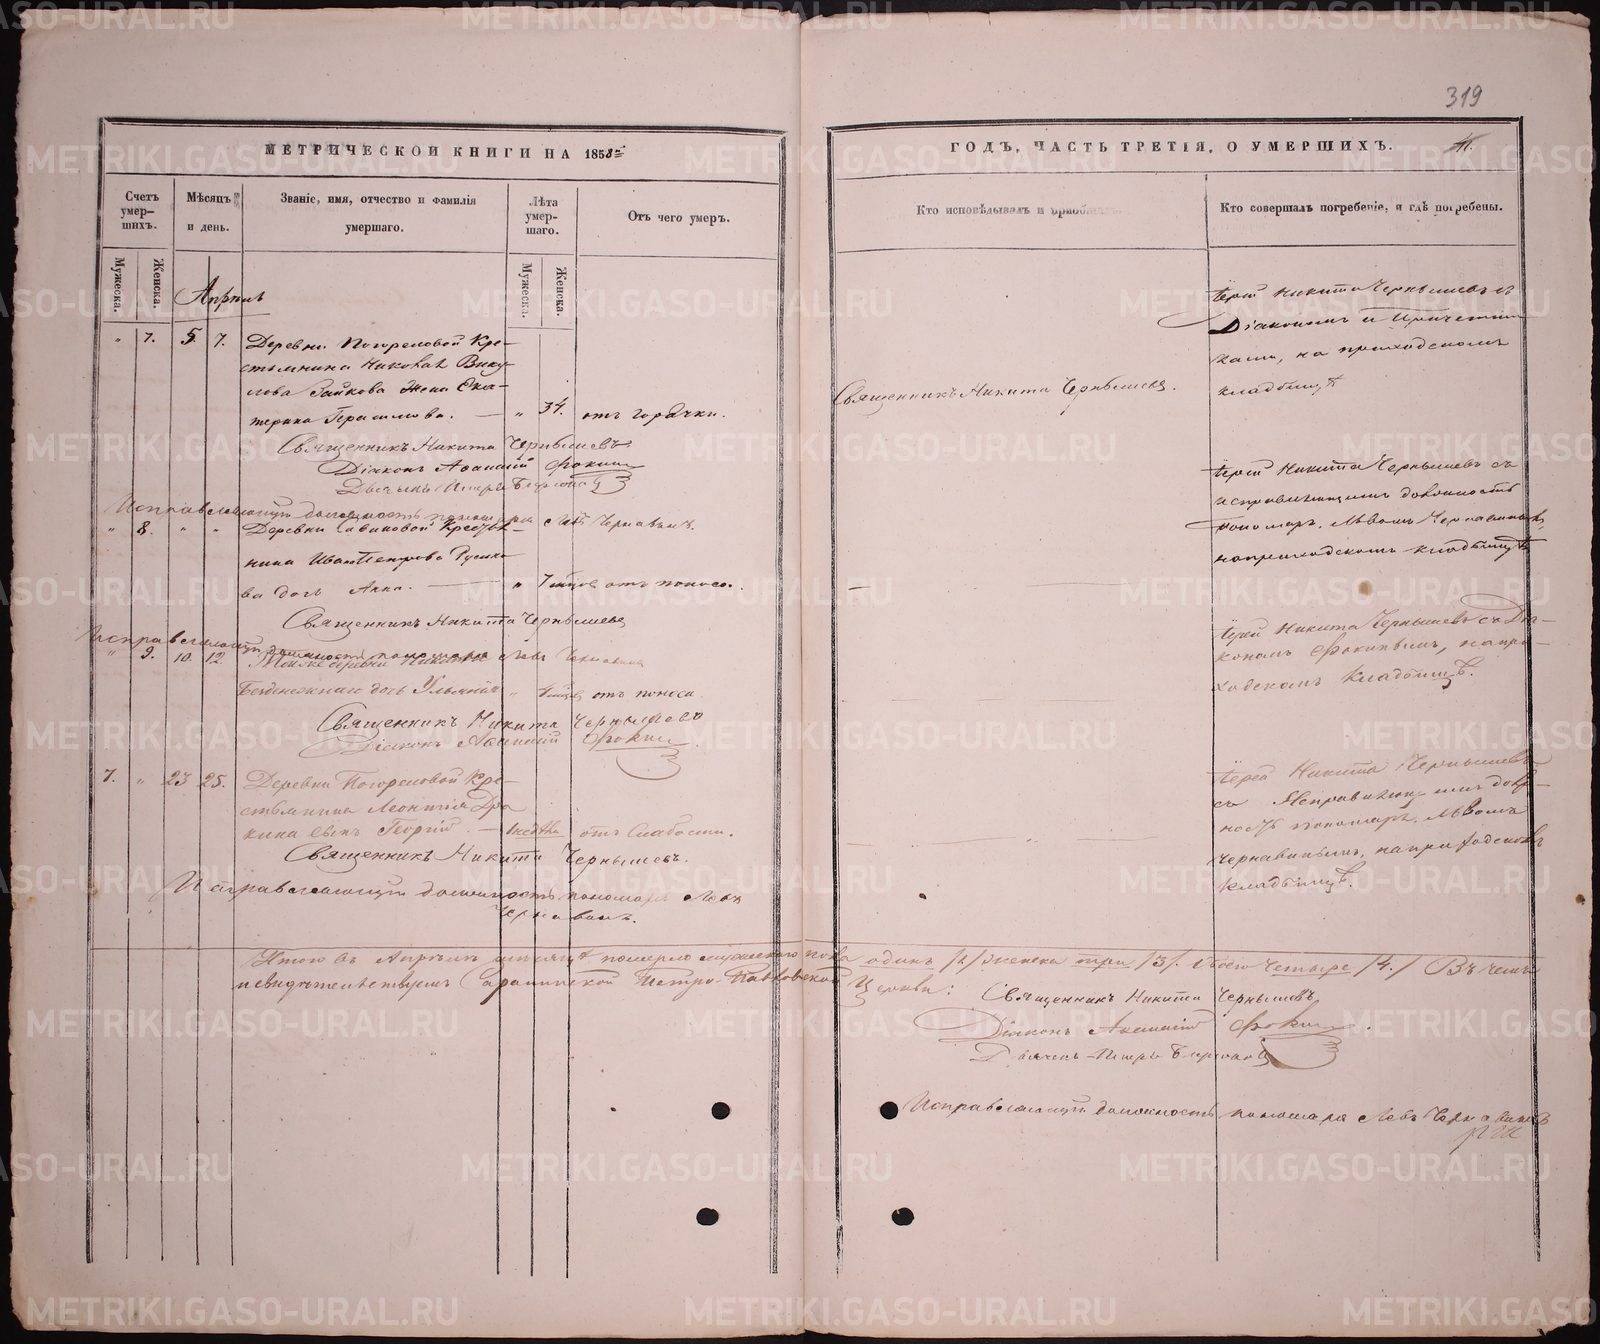 319
МЕТРИЧЕСКОЙ КНИГИ НА 1858
ГОДЪ, ЧАСТЬ ТРЕТІЯ, О УМЕРШИХЪ.
Счетъ умерших.
Мѣсяцъ и день.
Званіе, имя, отчество и фамилія умершаго.
Лѣта умершаго.
Отъ чего умеръ.
Кто исповѣдывалъ и
Кто совершалъ погребеніе, и гдѣ погребены.
Мужеска.
Женска.
Мужеска.
Женска.
Апрѣль
" 7. 5. 7. Деревни Погореловой Кре-
стьянина
Зайкова Жена Ека-
терина Герасимова. — " 34. отъ горячки.
Священникъ Никита Чернышевъ.
Іерей Никита Чернышевъ съ
Діакономъ и Причетни-
ками, на приходскомъ
кладбищѣ
Священникъ Никита Чернышевъ
Діаконъ Афанасій Фокинъ
Исправляющій должность пономаря Левъ Чернавинъ.
" 8. " " Деревни Савиновой Крестья-
нина Ивана Петрова
ва дочь Анна. — " 7 мѣсяц. отъ поноса.
Іерей Никита Чернышевъ съ
исправляющимъ должность
пономаря, Львомъ Чернавинымъ,
на приходскомъ кладбищѣ
Священникъ Никита Чернышевъ
Исправляющій должность пономаря Левъ Чернавинъ
" 9. 10. 12. Той же деревни
дочь " отъ поноса.
Іерей Никита Чернышевъ съ Діа-
кономъ Фокинымъ, на при-
ходскомъ Кладбищѣ.
Священникъ Никита Чернышевъ
Діаконъ Афанасій Фокинъ
7. " 23 25. Деревни Погореловой Кре-
стьянина Леонтія
кина сынъ Георгій. — отъ слабости.
Іерей Никита Чернышевъ
съ Исправляющимъ долж-
ность пономаря, Львомъ
Чернавинымъ, на приходскомъ
кладбищѣ.
Священникъ Никита Чернышевъ.
Исправляющій должность пономаря Левъ
Чернавинъ.
Итого въ Апрѣлѣ мѣсяцѣ померло мужеска пола одинъ /1/ женска три /3/. Обоего четыре /4./ Въ чемъ
и свидѣтельствуемъ Петро-Павловской Церкви:
Священникъ Никита Чернышевъ
Діаконъ Афанасій Фокинъ
Исправляющій должность пономаря Левъ Чернавинъ
METRIKI.GASO-URAL.RU